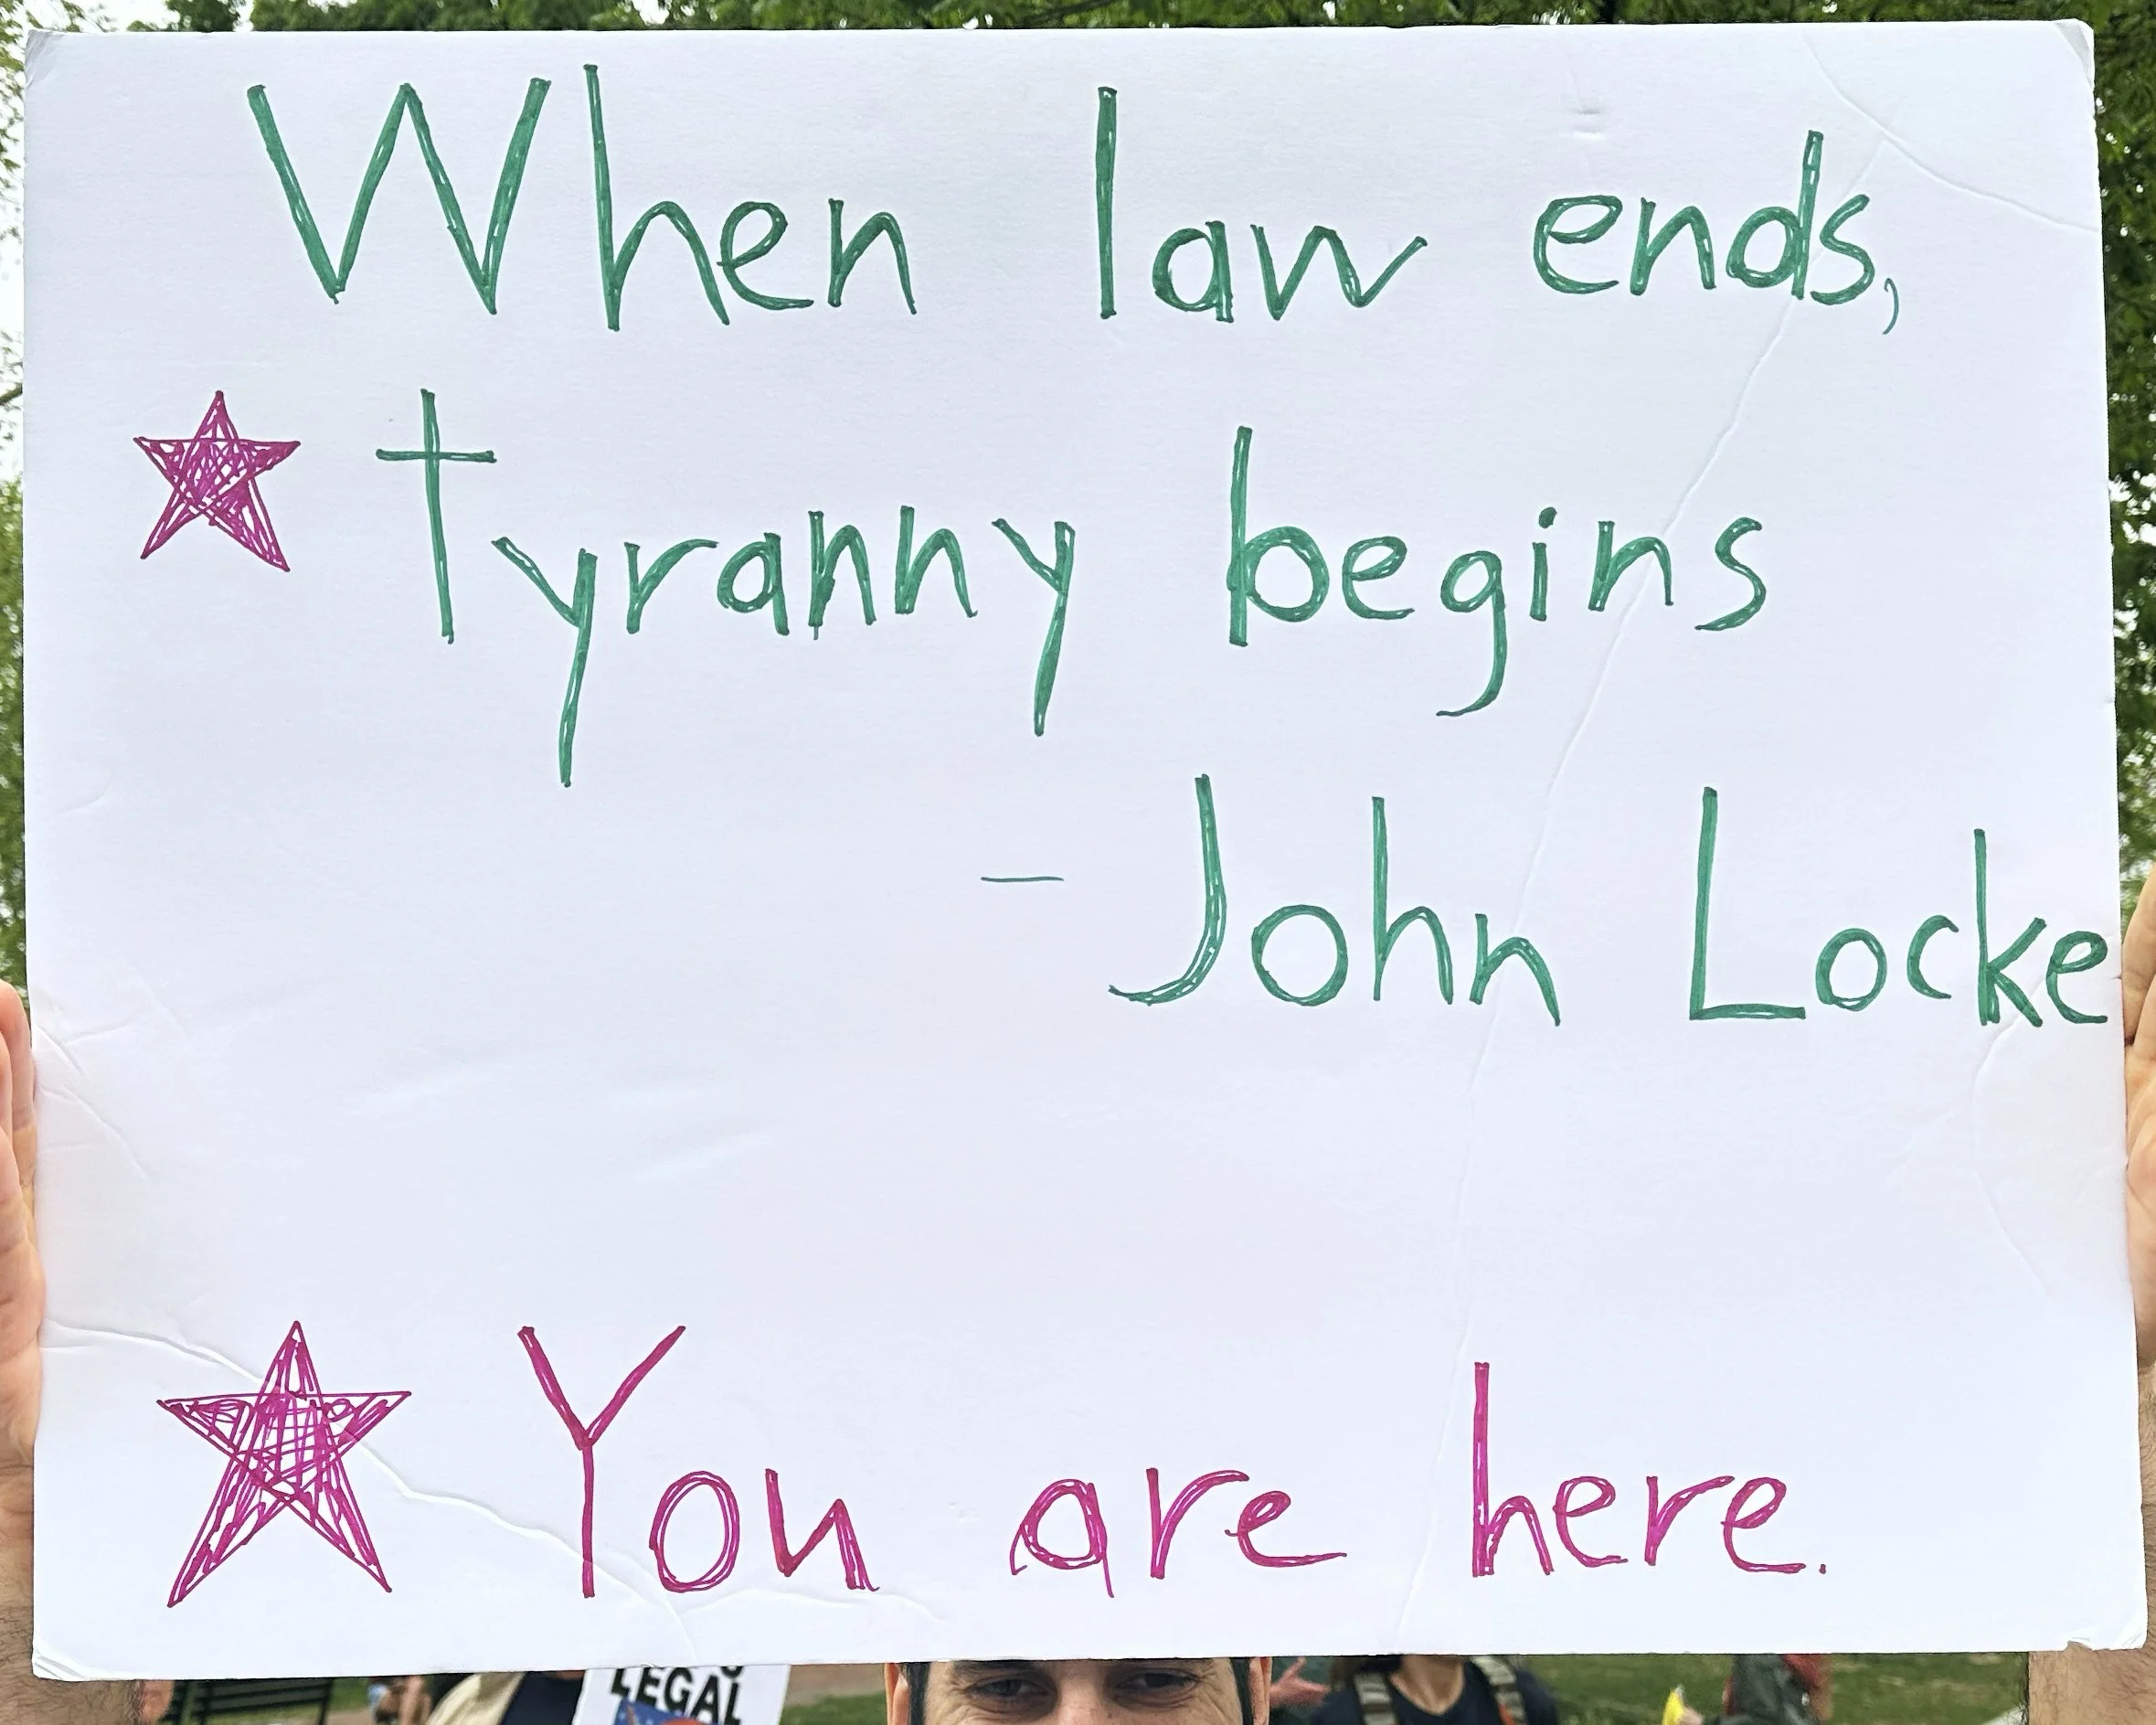 When law ends,
★ tyranny begins
- John Locke
★ You are here.
LEGAL